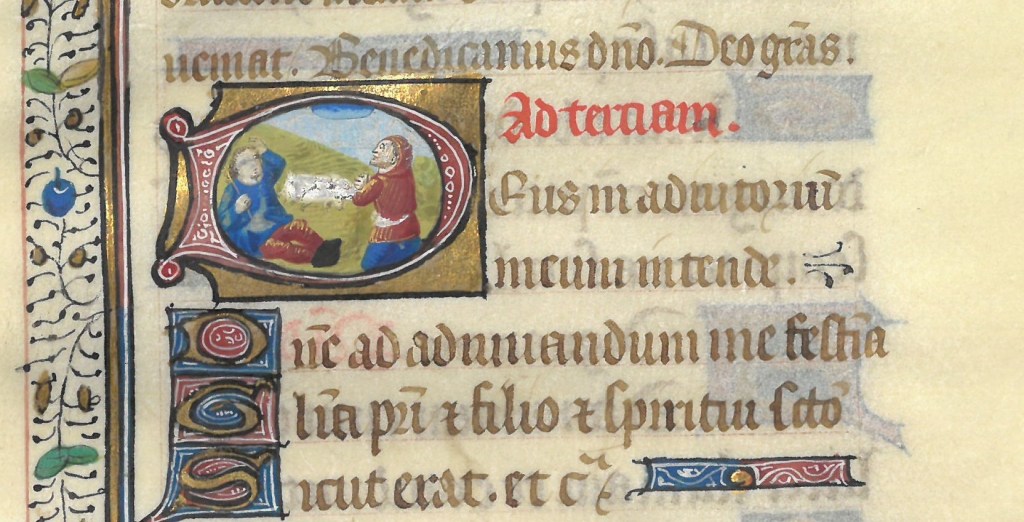 ueniat. Benedicamus dño. Deo grãs.
Ad terciam.
Deus in adiutoriũ
meum intende.
Dñe ad adiuuandum me festĩa
Glĩa pr̃i ⁊ filio ⁊ spiritui sctõ
Sicut erat. et c̃